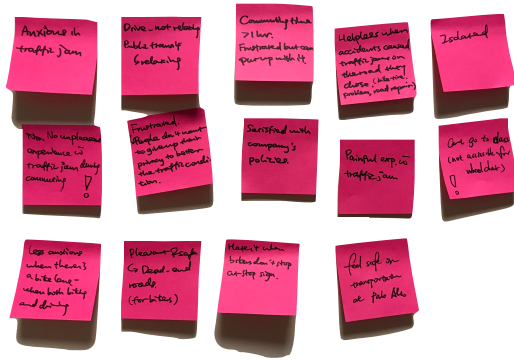 Anxious in
traffic jam
Drive - not relaxing
Public transit
relaxing
Commuting time
> 1 hr.
Frustrated but can
put up with it
Helpless when
accidents caused
traffic jams on
the road they
chose.
problem, road repair)
Isolated
No unpleasant
experience in
traffic jam during
commuting
!
Frustrated.
People don't want
to give up their
privacy to better
the traffic condi-
tion.
Satisfied with
company's
policies.
Painful exp. in
traffic jam
Can't go to
(not accessible for
!
Less anxious
when there's
a bike lane -
when both biking
and driving
Pleasant & safe
Dead-end
roads.
(for bikers)
Hates it when
bikers don't stop
at stop sign.
feel safe on
transportation
at Palo Alto.